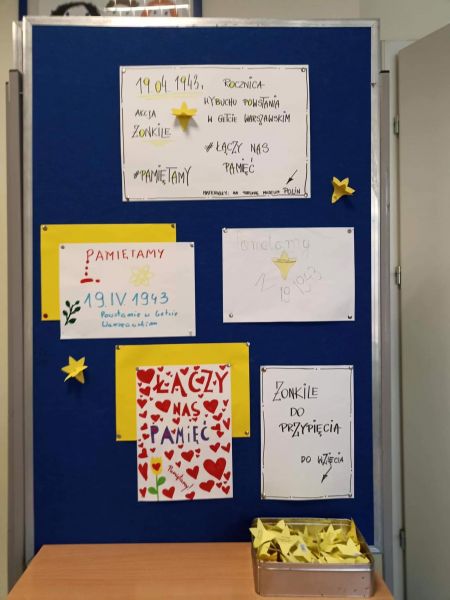 19.04.1943r.
ROCZNICA
WYBUCHU POWSTANIA
W GETCIE WARSZAWSKIM
AKCJA
ŻONKILE
#ŁĄCZY NAS
PAMIĘĆ
#PAMIĘTAMY
MATERIAŁY: NA STRONIE MUZEUM POLIN
PAMIETAMY
19.IV 1943
Powstanie w Getcie
Warszawskim
Pamiętamy
19
1943
ŁĄCZY
NAS
PAMIĘĆ
Pamiętamy!
ŻONKILE
DO
PRZYPIĘCIA
DO WZIĘCIA